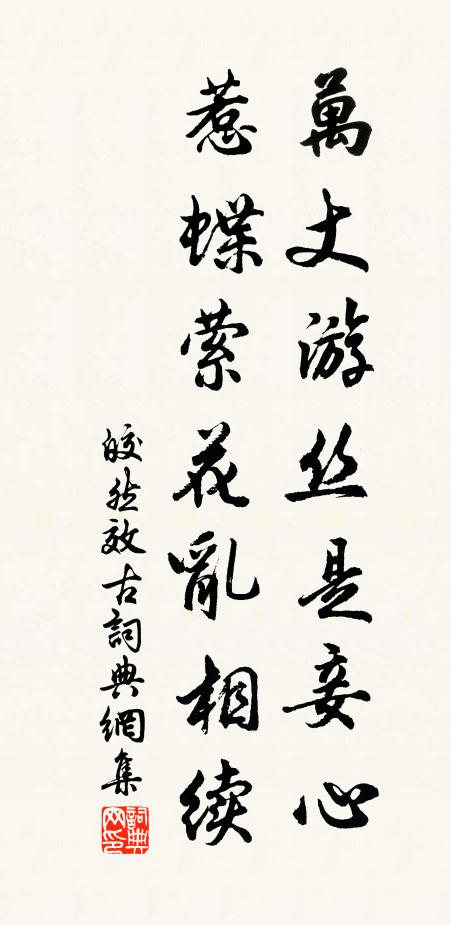 萬丈游丝是妾心
惹蝶萦花亂相续
皎然效古詞典網集
詞典网印